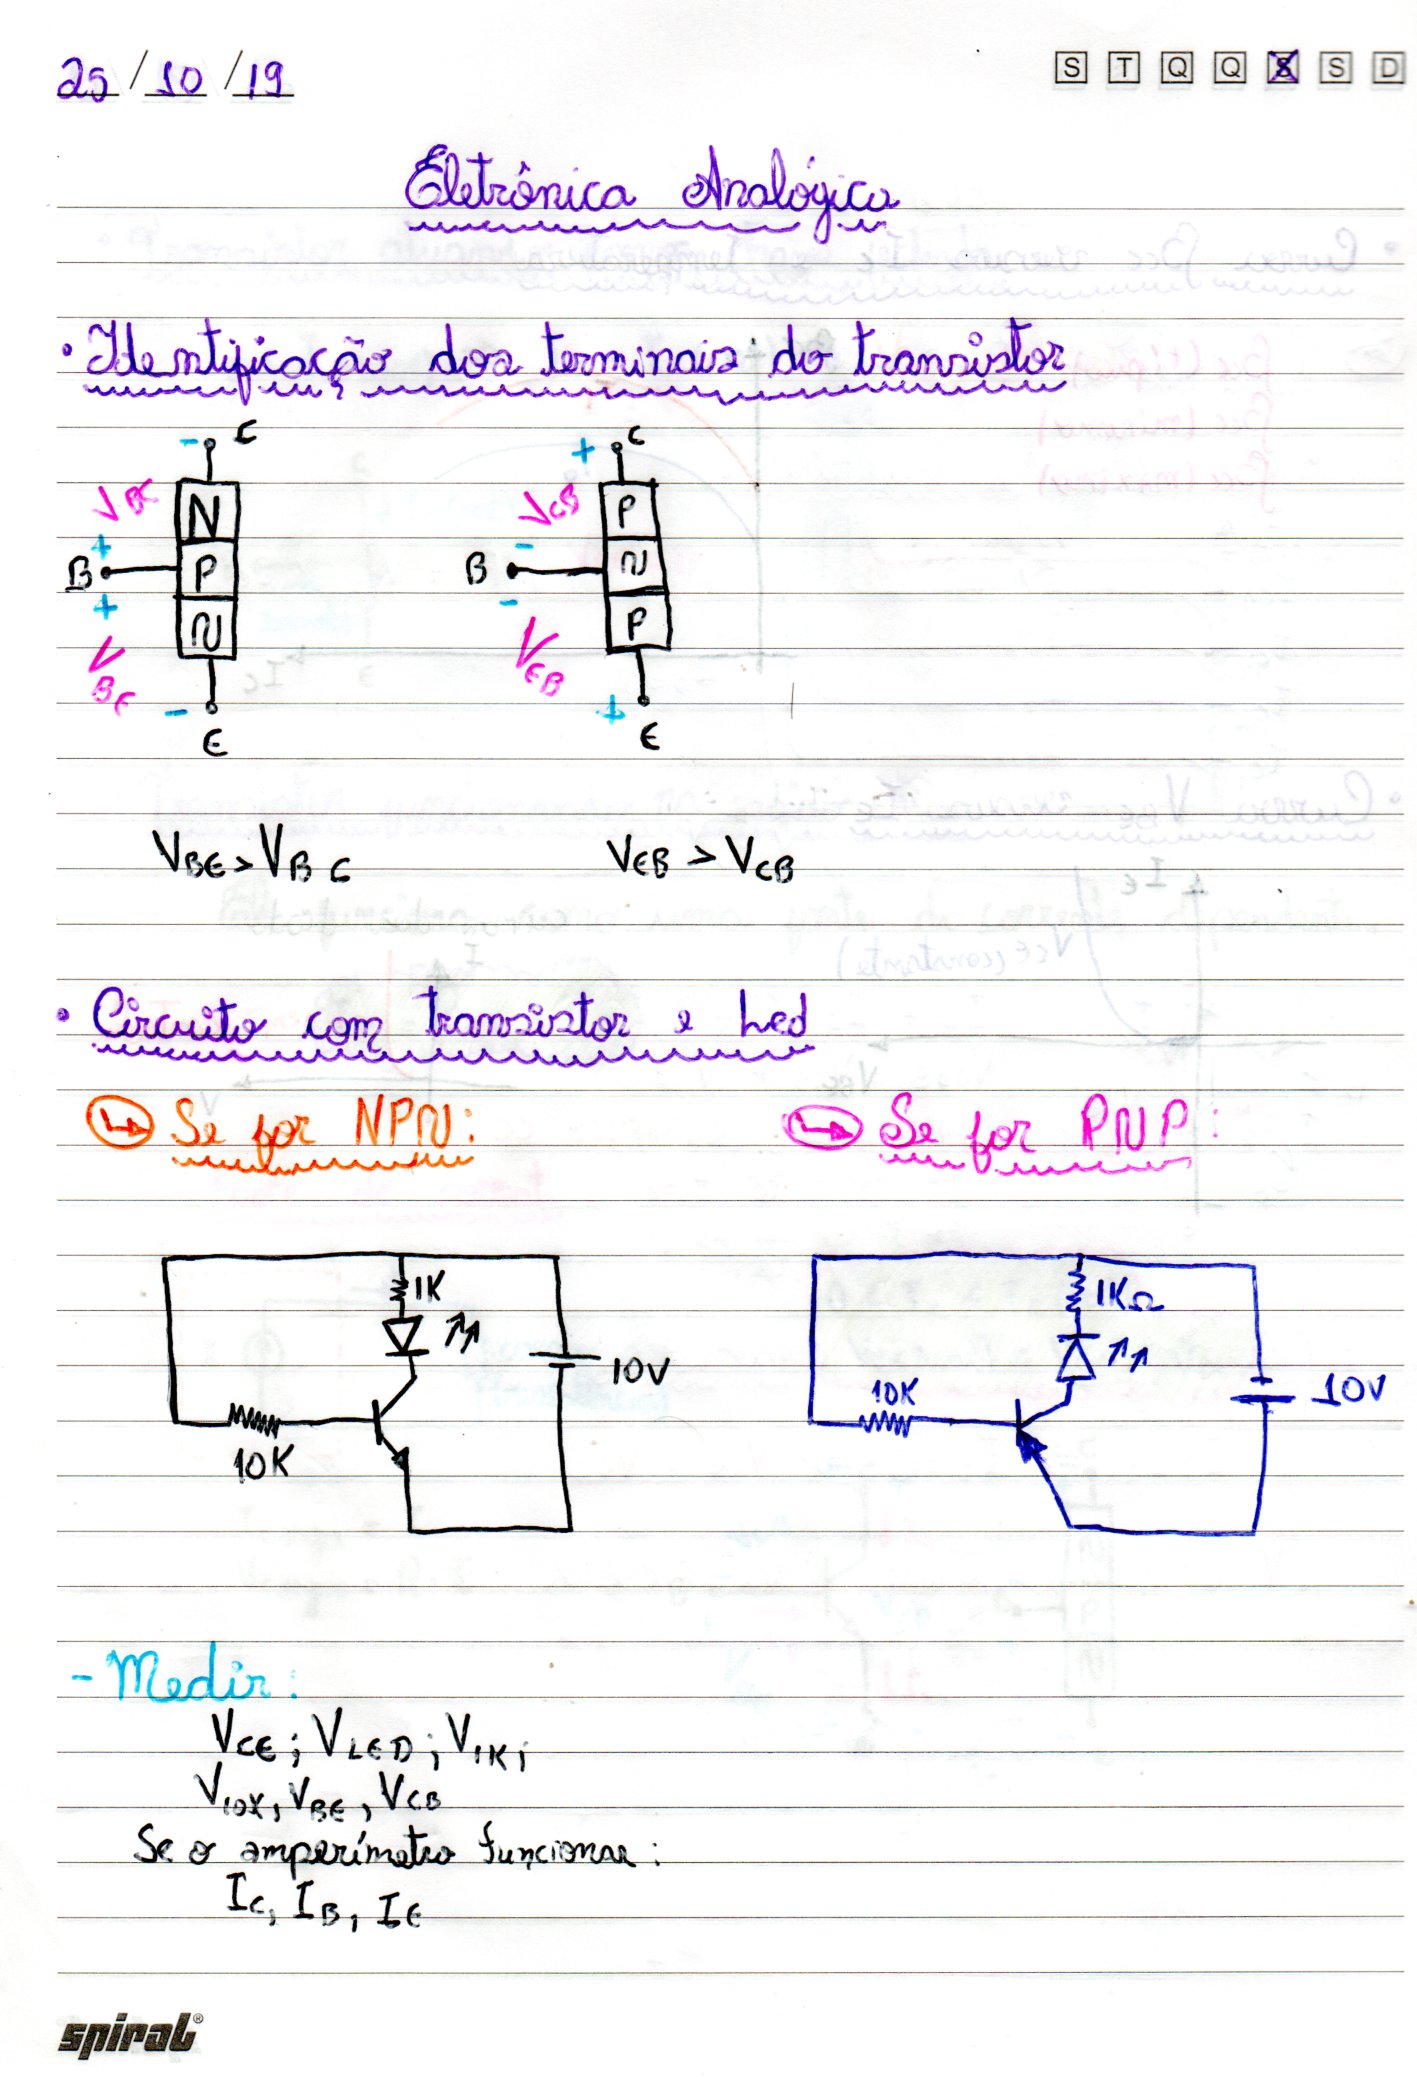 25/10/19 S T Q Q S S D
Eletrônica Analógica
• Identificação dos terminais do transistor
- C + C
VBC N VCB P
+ -
B P B N
+ -
VBE N VEB P
- +
E E
VBE > VBC VEB > VCB
• Circuito com transistor e Led
↳ Se for NPN: ↳ Se for PNP:
1K 1KΩ
10V 10K 10V
10K
- Medir:
VCE; VLED; V1K;
V10K, VBE, VCB
Se o amperímetro funcionar:
IC, IB, IE
spiral®